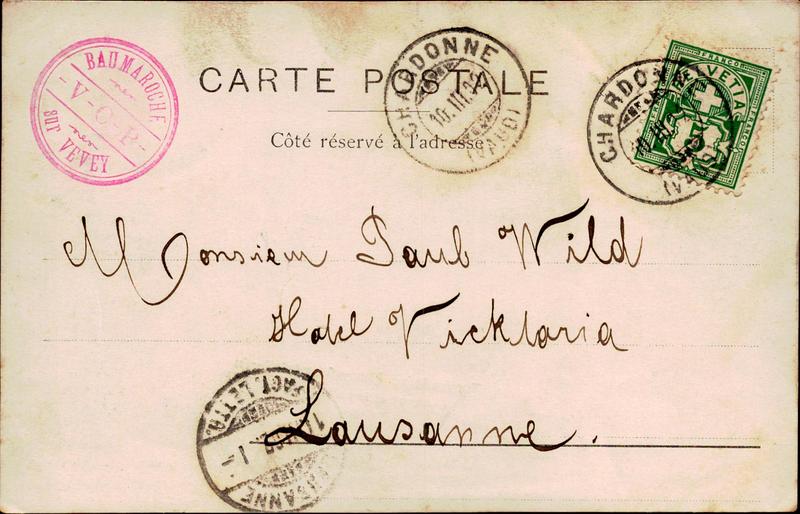 BAUMAROCHE
V-O-P
sur VEVEY
CARTE POSTALE
CHARDONNE
10.III.
(VAUD)
Côté réservé à l'adresse
FRANCO
HELVETIA
FRANCO
5
CHARDONNE
Monsieur Paul Wild
Hotel Vicktoria
Lausanne.
LAUSANNE